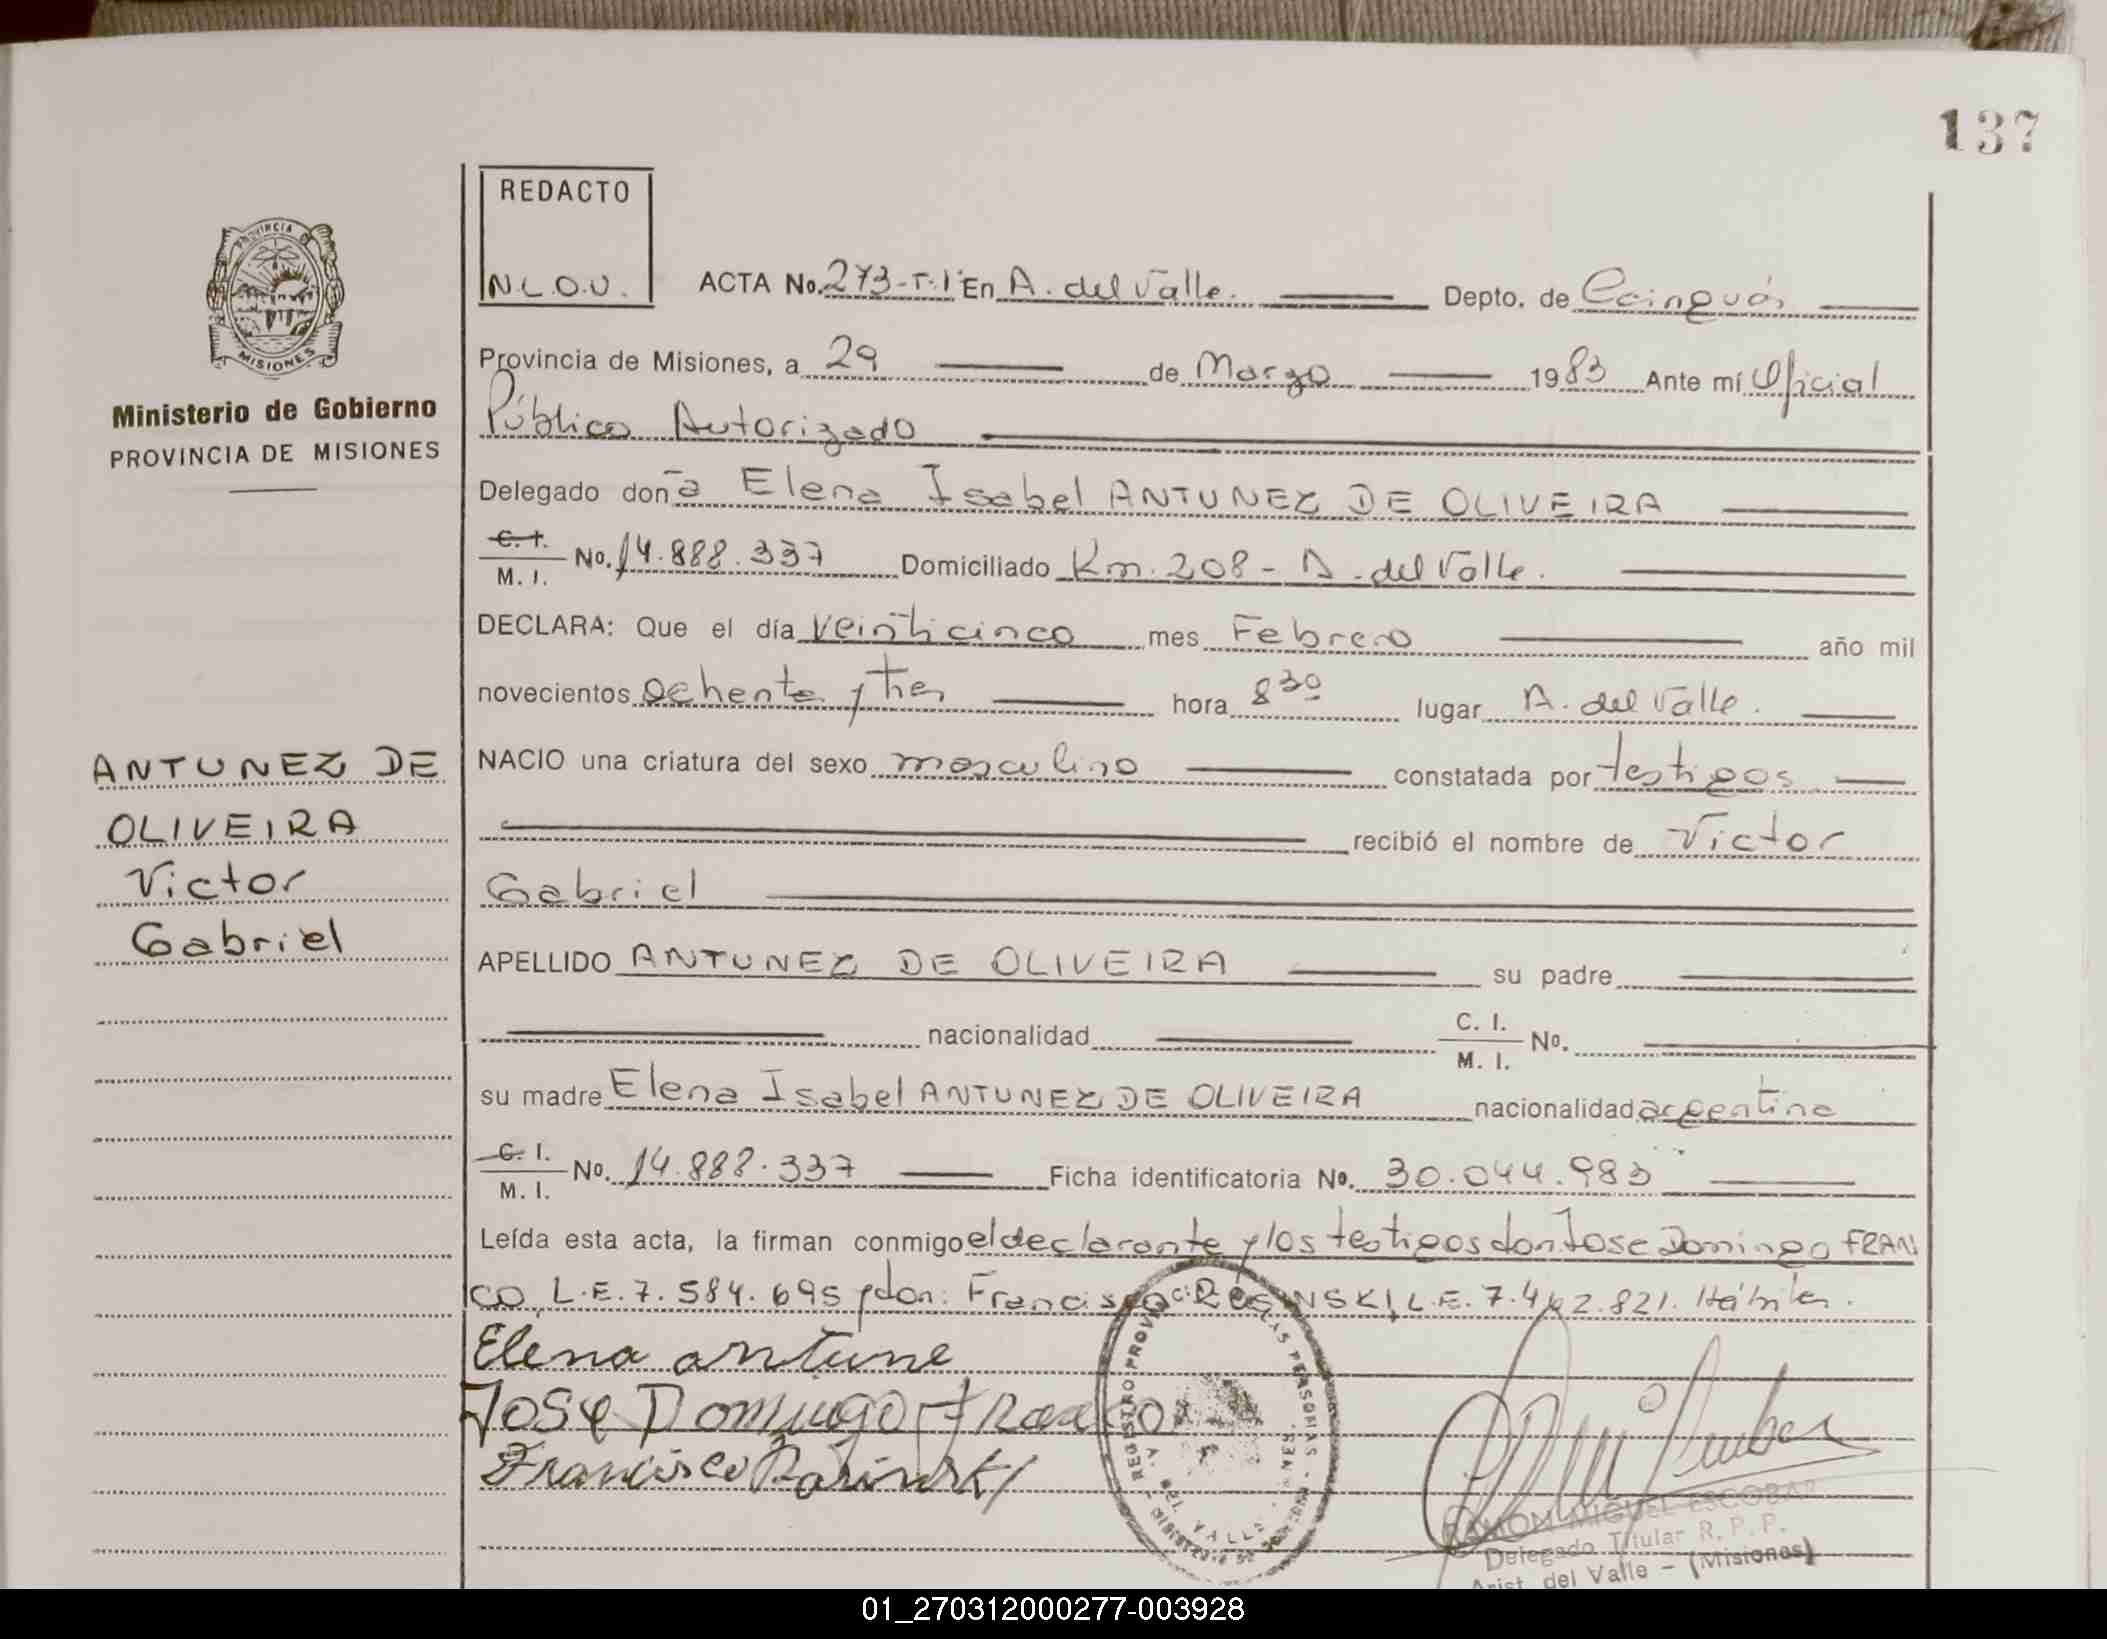 137
REDACTO
N.L.O.U.
PROVINCIA
MISIONES
Ministerio de Gobierno
PROVINCIA DE MISIONES
ACTA No. 273-T.1º En A. del Valle. Depto. de Cainguás
Provincia de Misiones, a 29 de Marzo 1983 Ante mí Oficial
Público Autorizado
Delegado doña Elena Isabel ANTUNEZ DE OLIVEIRA
C. I. M. I. No. 14.888.337 Domiciliado Km. 208 - A. del Valle.
DECLARA: Que el día veinticinco mes Febrero año mil
novecientos ochenta y tres hora 8 30 lugar A. del Valle.
NACIO una criatura del sexo masculino constatada por testigos
recibió el nombre de Victor
Gabriel
APELLIDO ANTUNEZ DE OLIVEIRA su padre
nacionalidad C. I. M. I. No.
su madre Elena Isabel ANTUNEZ DE OLIVEIRA nacionalidad argentina
C. I. M. I. No. 14.888.337 Ficha identificatoria No. 30.044.983
Leída esta acta, la firman conmigo el declarante y los testigos don Jose Domingo FRAN
CO, L.E. 7.584.695 y don: Francisco L.E. Hábiles.
Elena antune
Jose Domingo Franco
Francisco Rasinski
ANTUNEZ DE
OLIVEIRA
Victor
Gabriel
REGISTRO PROVINCIAL DE LAS PERSONAS
A. DEL VALLE
RAMON MIGUEL ESCOBAR
Delegado Titular R. P. P.
Arist. del Valle - (Misiones)
01_270312000277-003928